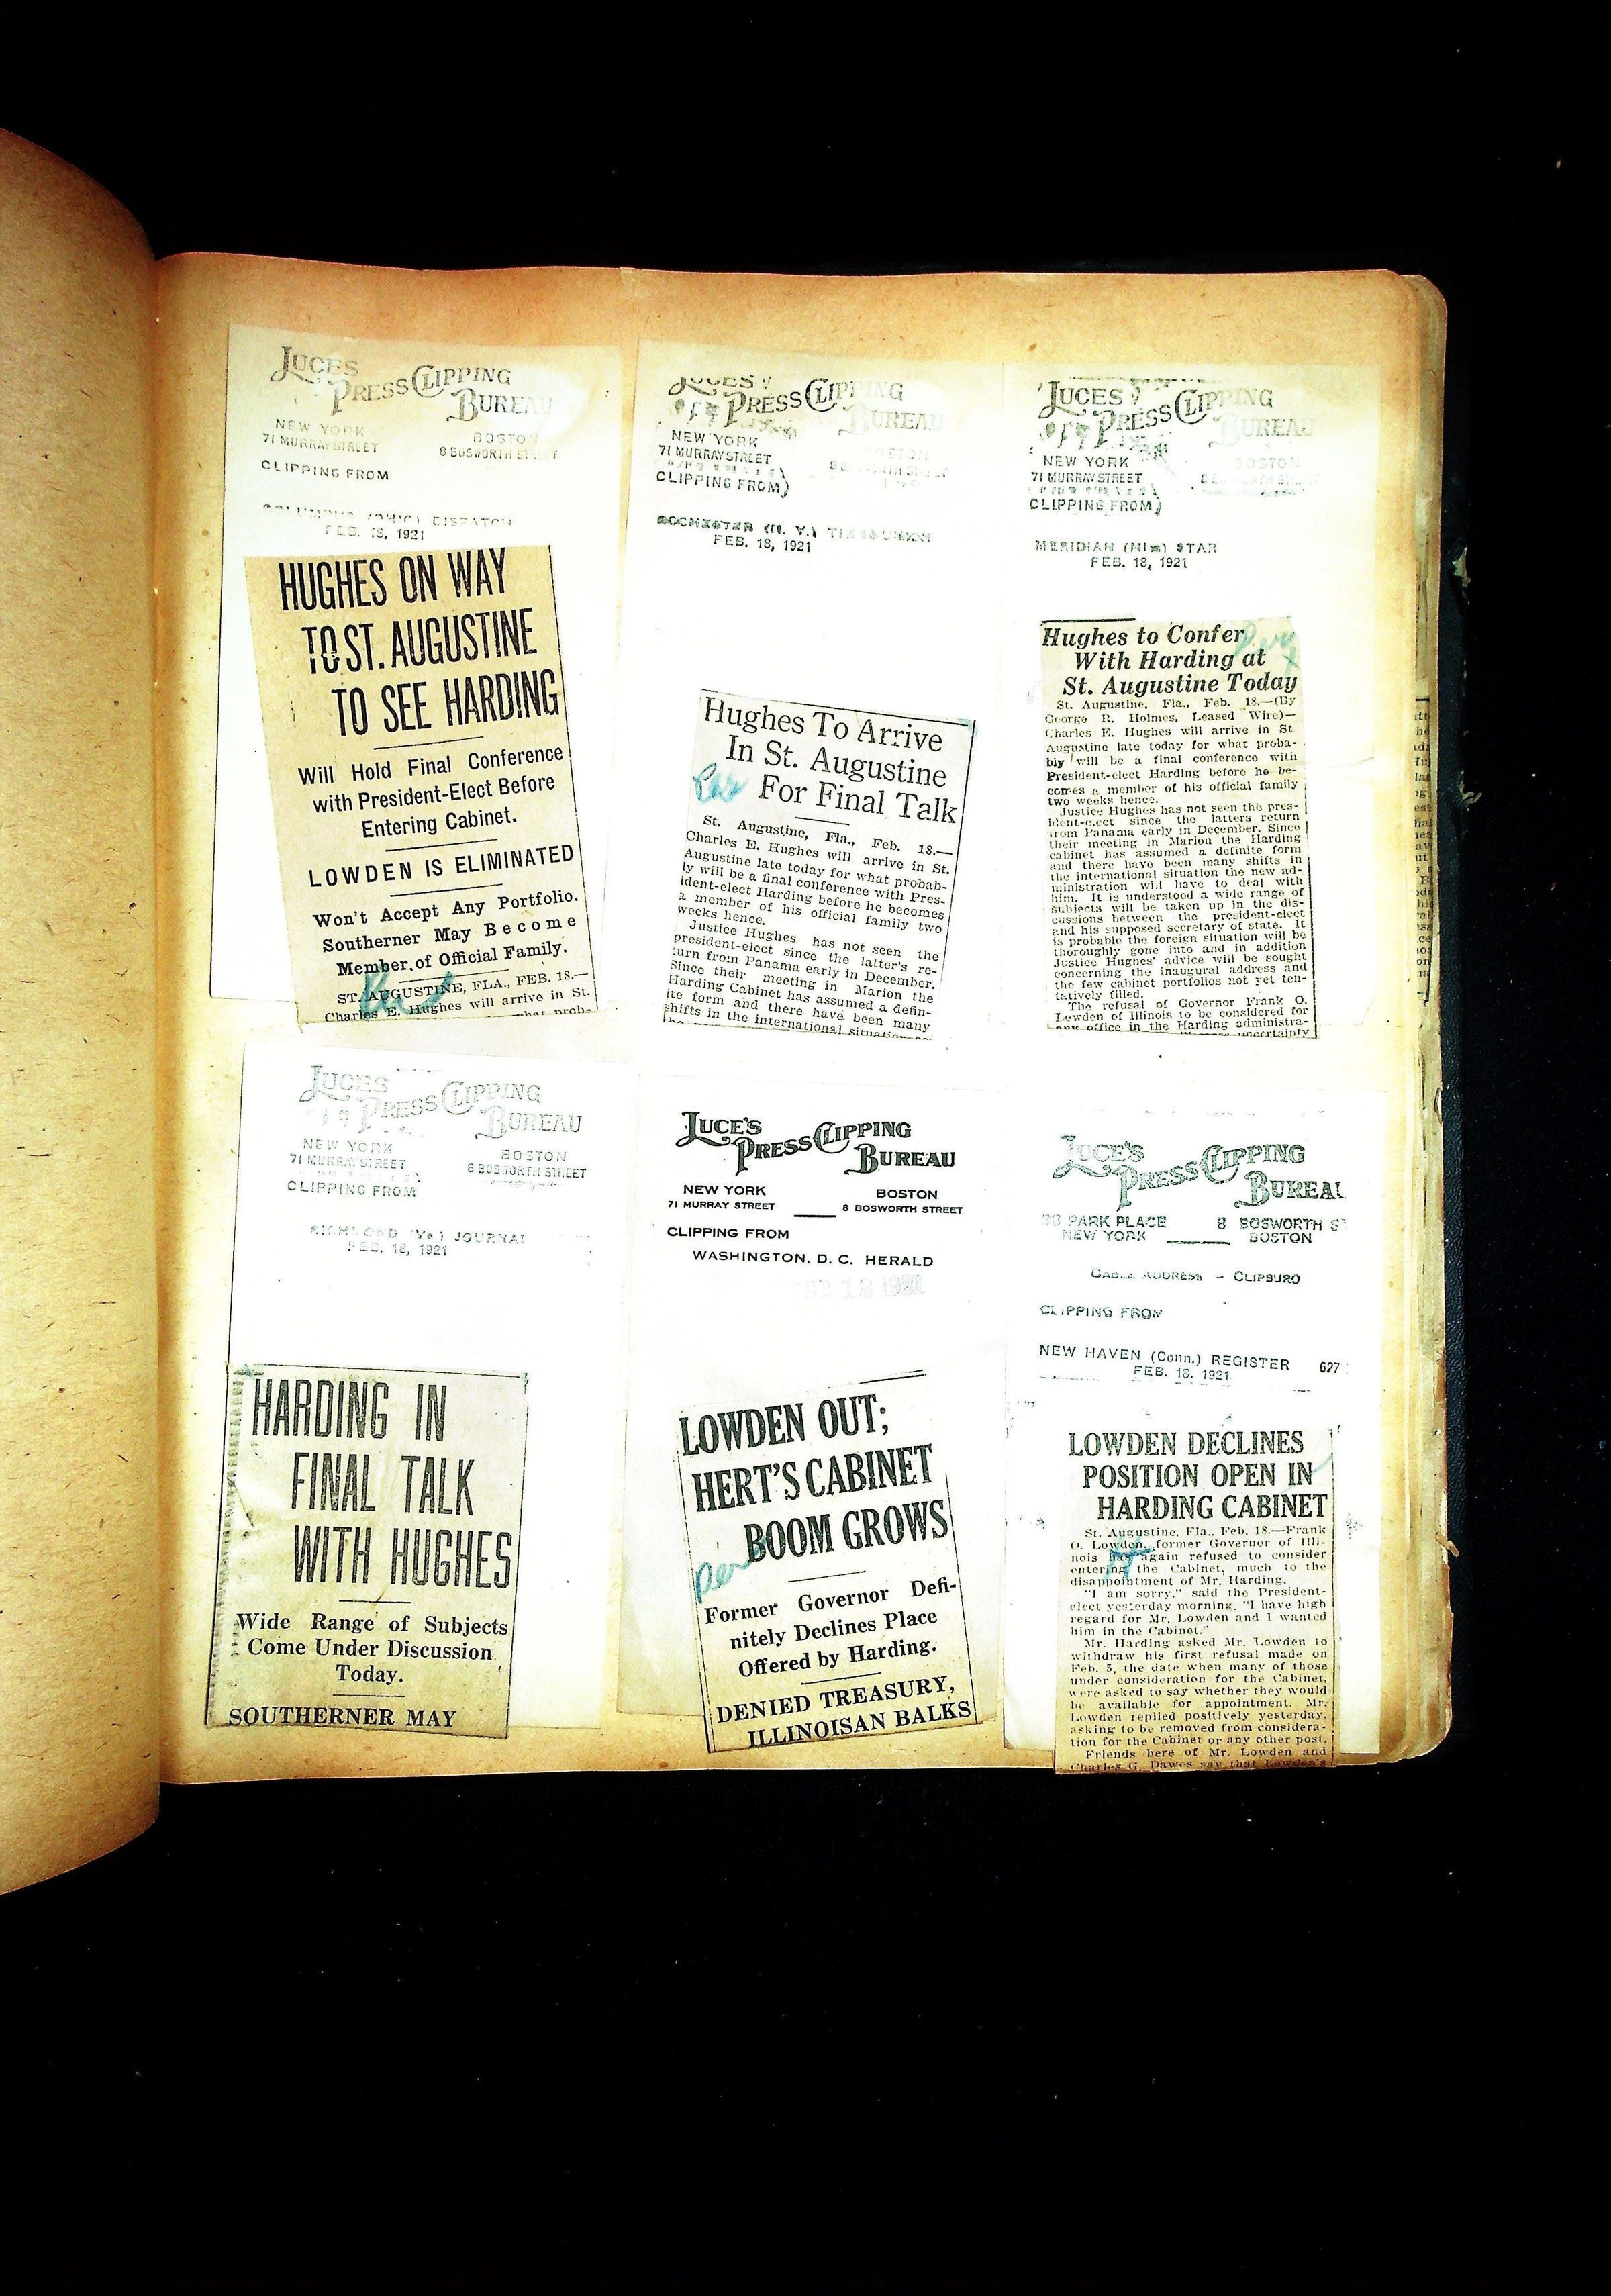 LUCES
PRESS CLIPPING
BUREAU
NEW YORK
BOSTON
71 MURRAY STREET
8 BOSWORTH STREET
CLIPPING FROM
COLUMBUS (OHIO) DISPATCH
FEB. 18, 1921
HUGHES ON WAY
TO ST. AUGUSTINE
TO SEE HARDING
Will Hold Final Conference
with President-Elect Before
Entering Cabinet.
LOWDEN IS ELIMINATED
Won't Accept Any Portfolio.
Southerner May Become
Member of Official Family.
ST. AUGUSTINE, FLA., FEB. 18.—
Charles E. Hughes will arrive in St.
what prob-
LUCES
PRESS CLIPPING
BUREAU
NEW YORK
BOSTON
71 MURRAY STREET
CLIPPING FROM
ROCHESTER (N. Y.)
FEB. 18, 1921
Hughes To Arrive
In St. Augustine
For Final Talk
St. Augustine, Fla., Feb. 18.—
Charles E. Hughes will arrive in St.
Augustine late today for what probab-
ly will be a final conference with Pres-
ident-elect Harding before he becomes
a member of his official family two
weeks hence.
Justice Hughes has not seen the
president-elect since the latter's re-
turn from Panama early in December.
Since their meeting in Marion the
Harding Cabinet has assumed a defin-
ite form and there have been many
shifts in the international situation
LUCES
PRESS CLIPPING
BUREAU
NEW YORK
BOSTON
71 MURRAY STREET
CLIPPING FROM
MERIDIAN (Miss) STAR
FEB. 18, 1921
Hughes to Confer
With Harding at
St. Augustine Today
St. Augustine, Fla., Feb. 18.—(By
George R. Holmes, Leased Wire)—
Charles E. Hughes will arrive in St
Augustine late today for what proba-
bly will be a final conference with
President-elect Harding before he be-
comes a member of his official family
two weeks hence.
Justice Hughes has not seen the pres-
ident-elect since the latters return
from Panama early in December. Since
their meeting in Marion the Harding
cabinet has assumed a definite form
and there have been many shifts in
the international situation the new ad-
ministration will have to deal with
him. It is understood a wide range of
subjects will be taken up in the dis-
cussions between the president-elect
and his supposed secretary of state. It
is probable the foreign situation will be
thoroughly gone into and in addition
Justice Hughes' advice will be sought
concerning the inaugural address and
the few cabinet portfolios not yet ten-
tatively filled.
The refusal of Governor Frank O.
Lowden of Illinois to be considered for
any office in the Harding administra-
uncertainty
LUCES
PRESS CLIPPING
BUREAU
NEW YORK
BOSTON
71 MURRAY STREET
8 BOSWORTH STREET
CLIPPING FROM
RICHMOND (Va.) JOURNAL
FEB. 18, 1921
HARDING IN
FINAL TALK
WITH HUGHES
Wide Range of Subjects
Come Under Discussion
Today.
SOUTHERNER MAY
LUCE'S
PRESS CLIPPING
BUREAU
NEW YORK
BOSTON
71 MURRAY STREET
8 BOSWORTH STREET
CLIPPING FROM
WASHINGTON, D. C. HERALD
LOWDEN OUT;
HERT'S CABINET
BOOM GROWS
Former Governor Defi-
nitely Declines Place
Offered by Harding.
DENIED TREASURY,
ILLINOISAN BALKS
LUCE'S
PRESS CLIPPING
BUREAU
PARK PLACE
8 BOSWORTH ST
NEW YORK
BOSTON
CABLE ADDRESS - CLIPBURO
CLIPPING FROM
NEW HAVEN (Conn.) REGISTER 627
FEB. 18, 1921
LOWDEN DECLINES
POSITION OPEN IN
HARDING CABINET
St. Augustine, Fla., Feb. 18.—Frank
O. Lowden, former Governor of Illi-
nois has again refused to consider
entering the Cabinet, much to the
disappointment of Mr. Harding.
"I am sorry," said the President-
elect yesterday morning, "I have high
regard for Mr. Lowden and I wanted
him in the Cabinet."
Mr. Harding asked Mr. Lowden to
withdraw his first refusal made on
Feb. 5, the date when many of those
under consideration for the Cabinet,
were asked to say whether they would
be available for appointment. Mr.
Lowden replied positively yesterday,
asking to be removed from considera-
tion for the Cabinet or any other post.
Friends here of Mr. Lowden and
Charles G. Dawes say that Lowden's